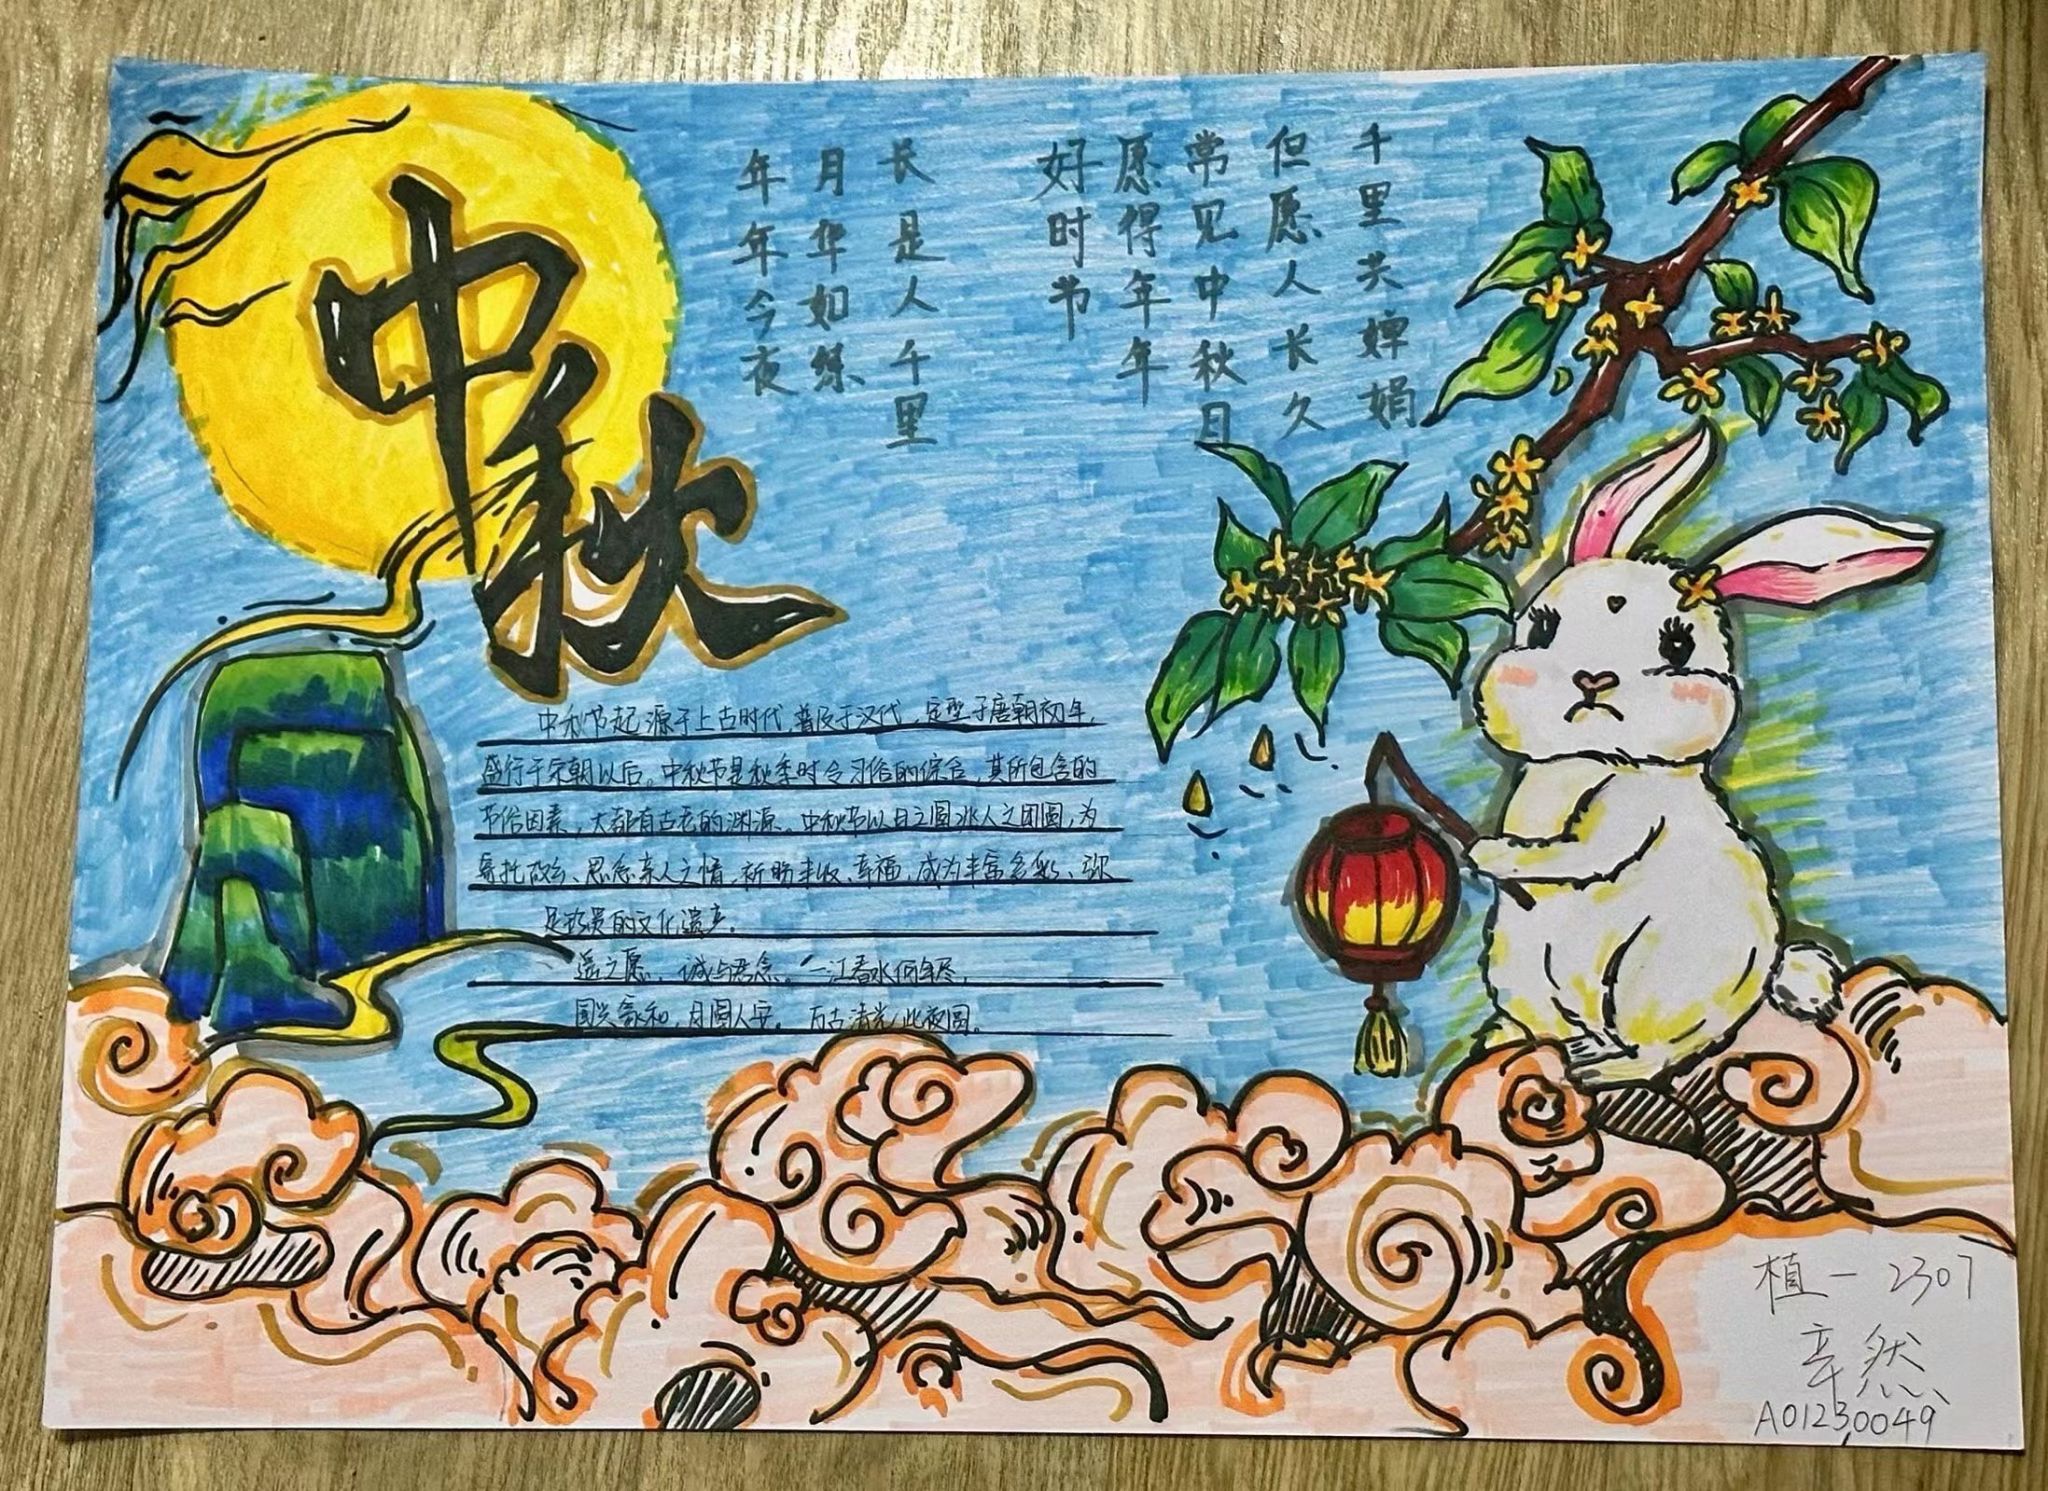 中秋
千里共婵娟
但愿人长久
常见中秋日
愿得年年
好时节
长是人千里
月华如练
年年今夜
中秋节起源于上古时代,普及于汉代,定型于唐朝初年,
盛行于宋朝以后。中秋节是秋季时令习俗的综合,其所包含的
节俗因素,大都有古老的渊源。中秋节以月之圆兆人之团圆,为
寄托故乡、思念亲人之情,祈盼丰收、幸福,成为丰富多彩、弥
足珍贵的文化遗产。
遥之愿,诚与君念。一江春水何年尽,
国兴家和,月圆人安。万古清光此夜圆。
植-2307
辛然
A01230049